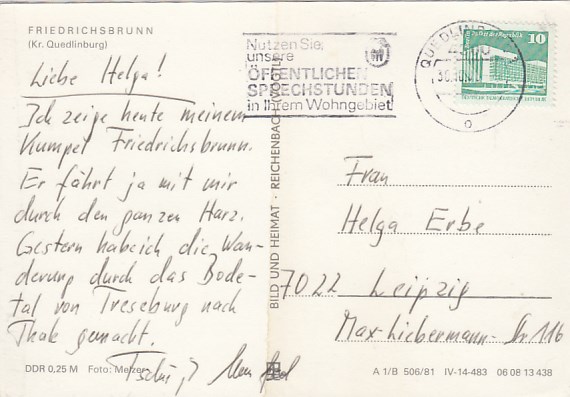 FRIEDRICHSBRUNN
(Kr. Quedlinburg)
Liebe Helga!
Ich zeige heute meinem
Kumpel Friedrichsbrunn.
Er fährt ja mit mir
durch den ganzen Harz.
Gestern habe ich die Wan-
derung durch das Bode-
tal von Treseburg nach
Thale gemacht.
Tschüß
DDR 0,25 M Foto: Melzer
BILD UND HEIMAT · REICHENBACH (VOGTL)
Nutzen Sie
unsere
ÖFFENTLICHEN
SPRECHSTUNDEN
in Ihrem Wohngebiet!
QUEDLINBURG
10
Frau
Helga Erbe
7022 Leipzig
Max-Liebermann-Str 116
A 1/B 506/81 IV-14-483 06 08 13 438